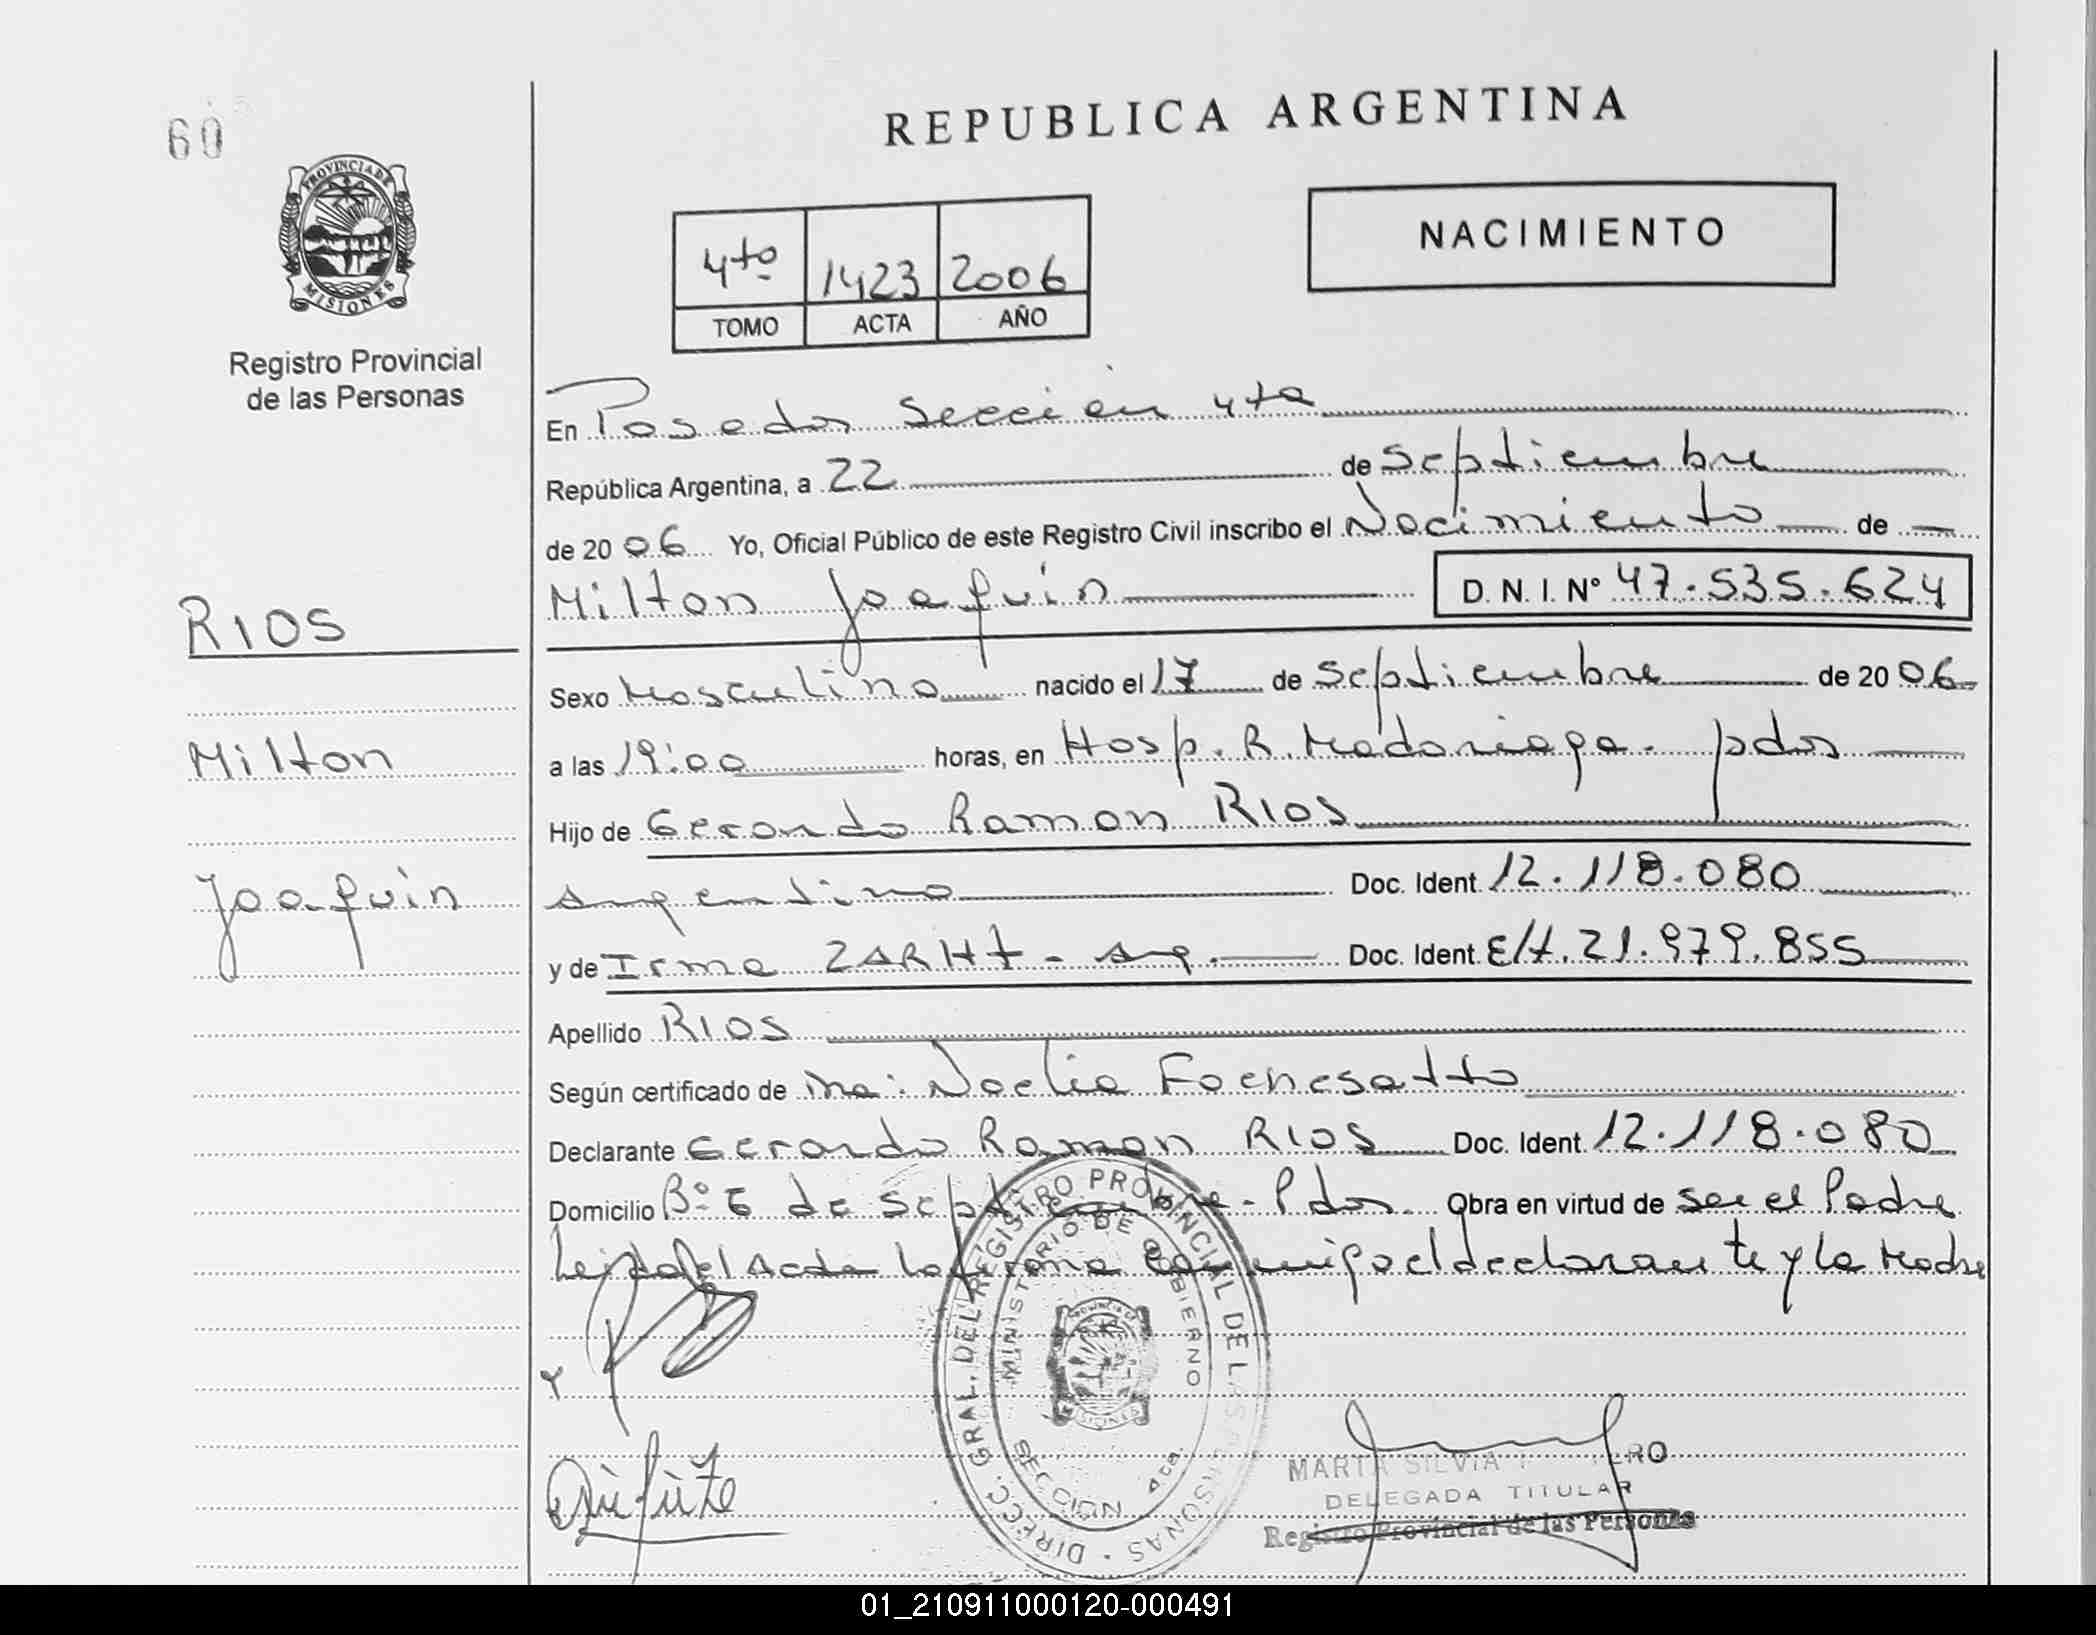 60
PROVINCIA DE
MISIONES
Registro Provincial
de las Personas
RIOS
Milton
Joaquín
REPUBLICA ARGENTINA
4to 1423 2006
TOMO ACTA AÑO
NACIMIENTO
En Posadas Sección 4ta
República Argentina, a 22 de Septiembre
de 2006 Yo, Oficial Público de este Registro Civil inscribo el Nacimiento de
Milton Joaquín D. N. I. Nº 47.535.624
Sexo Masculino nacido el 17 de Septiembre de 2006
a las 19:00 horas, en Hosp. R. Madariaga. pdas
Hijo de Gerardo Ramon RIOS
argentino Doc. Ident. 12.118.080
y de Irma ZARHT - arg. Doc. Ident. E/t. 21.979.855
Apellido RIOS
Según certificado de Noelia
Declarante Gerardo Ramon RIOS Doc. Ident. 12.118.080
Domicilio Bº de Septiembre - Pdas. Obra en virtud de ser el Padre
Leida el Acta la firma conmigo el declarante y la Madre
DIRECC. GRAL. DEL REGISTRO PROVINCIAL DE LAS PERSONAS
MINISTERIO DE GOBIERNO
SECCION 4ta.
MARTA SILVIA
DELEGADA TITULAR
Registro Provincial de las Personas
01_210911000120-000491